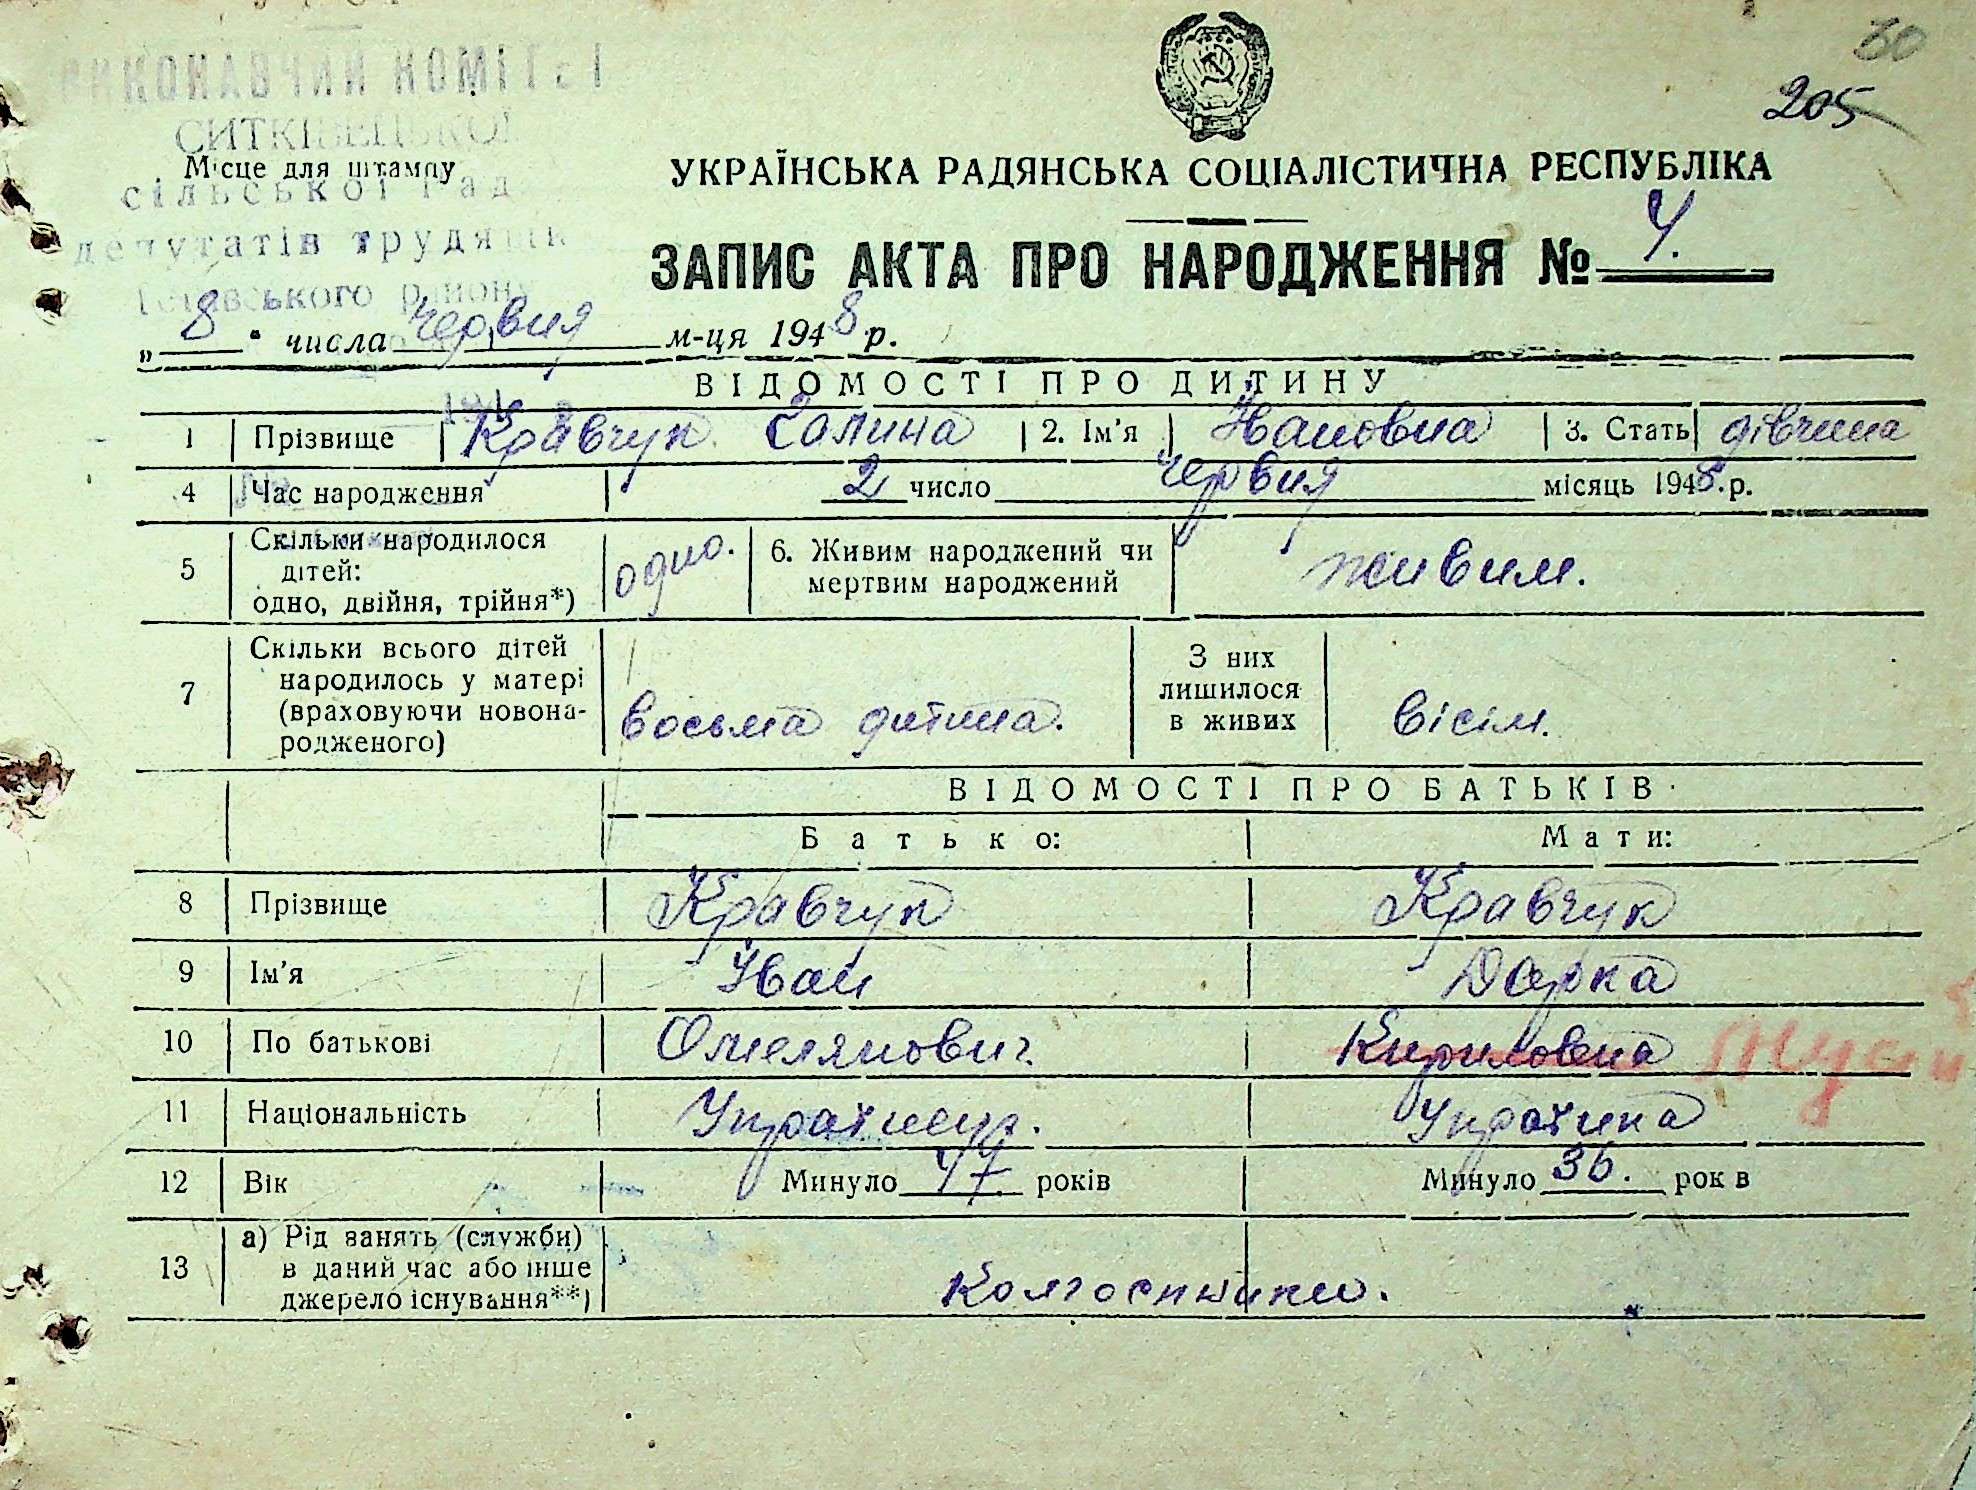 УРСР
60
205
ВИКОНАВЧИЙ КОМІТЕТ
СИТКІВЕЦЬКОЇ
Місце для штампу
сільської Рад
депутатів трудящих
району
УКРАЇНСЬКА РАДЯНСЬКА СОЦІАЛІСТИЧНА РЕСПУБЛІКА
ЗАПИС АКТА ПРО НАРОДЖЕННЯ № 4.
„ 8 " числа Червня м-ця 1948 р.
ВІДОМОСТІ ПРО ДИТИНУ
1 Прізвище Кравчук Галина 2. Ім'я Івановна 3. Стать дівчина
4 Час народження 2 число червня місяць 1948.р.
5 Скільки народилося дітей: одно, двійня, трійня*) одно. 6. Живим народжений чи мертвим народжений живим.
7 Скільки всього дітей народилось у матері (враховуючи новонародженого) восьма дитина. З них лишилося в живих вісім.
ВІДОМОСТІ ПРО БАТЬКІВ
Батько: Мати:
8 Прізвище Кравчук Кравчук
9 Ім'я Іван Дарка
10 По батькові Омелянович Кириловна
11 Національність Українец. Українка
12 Вік Минуло 47 років Минуло 36. рок в
13 а) Рід занять (служби) в даний час або інше джерело існування**) Колгоспники.